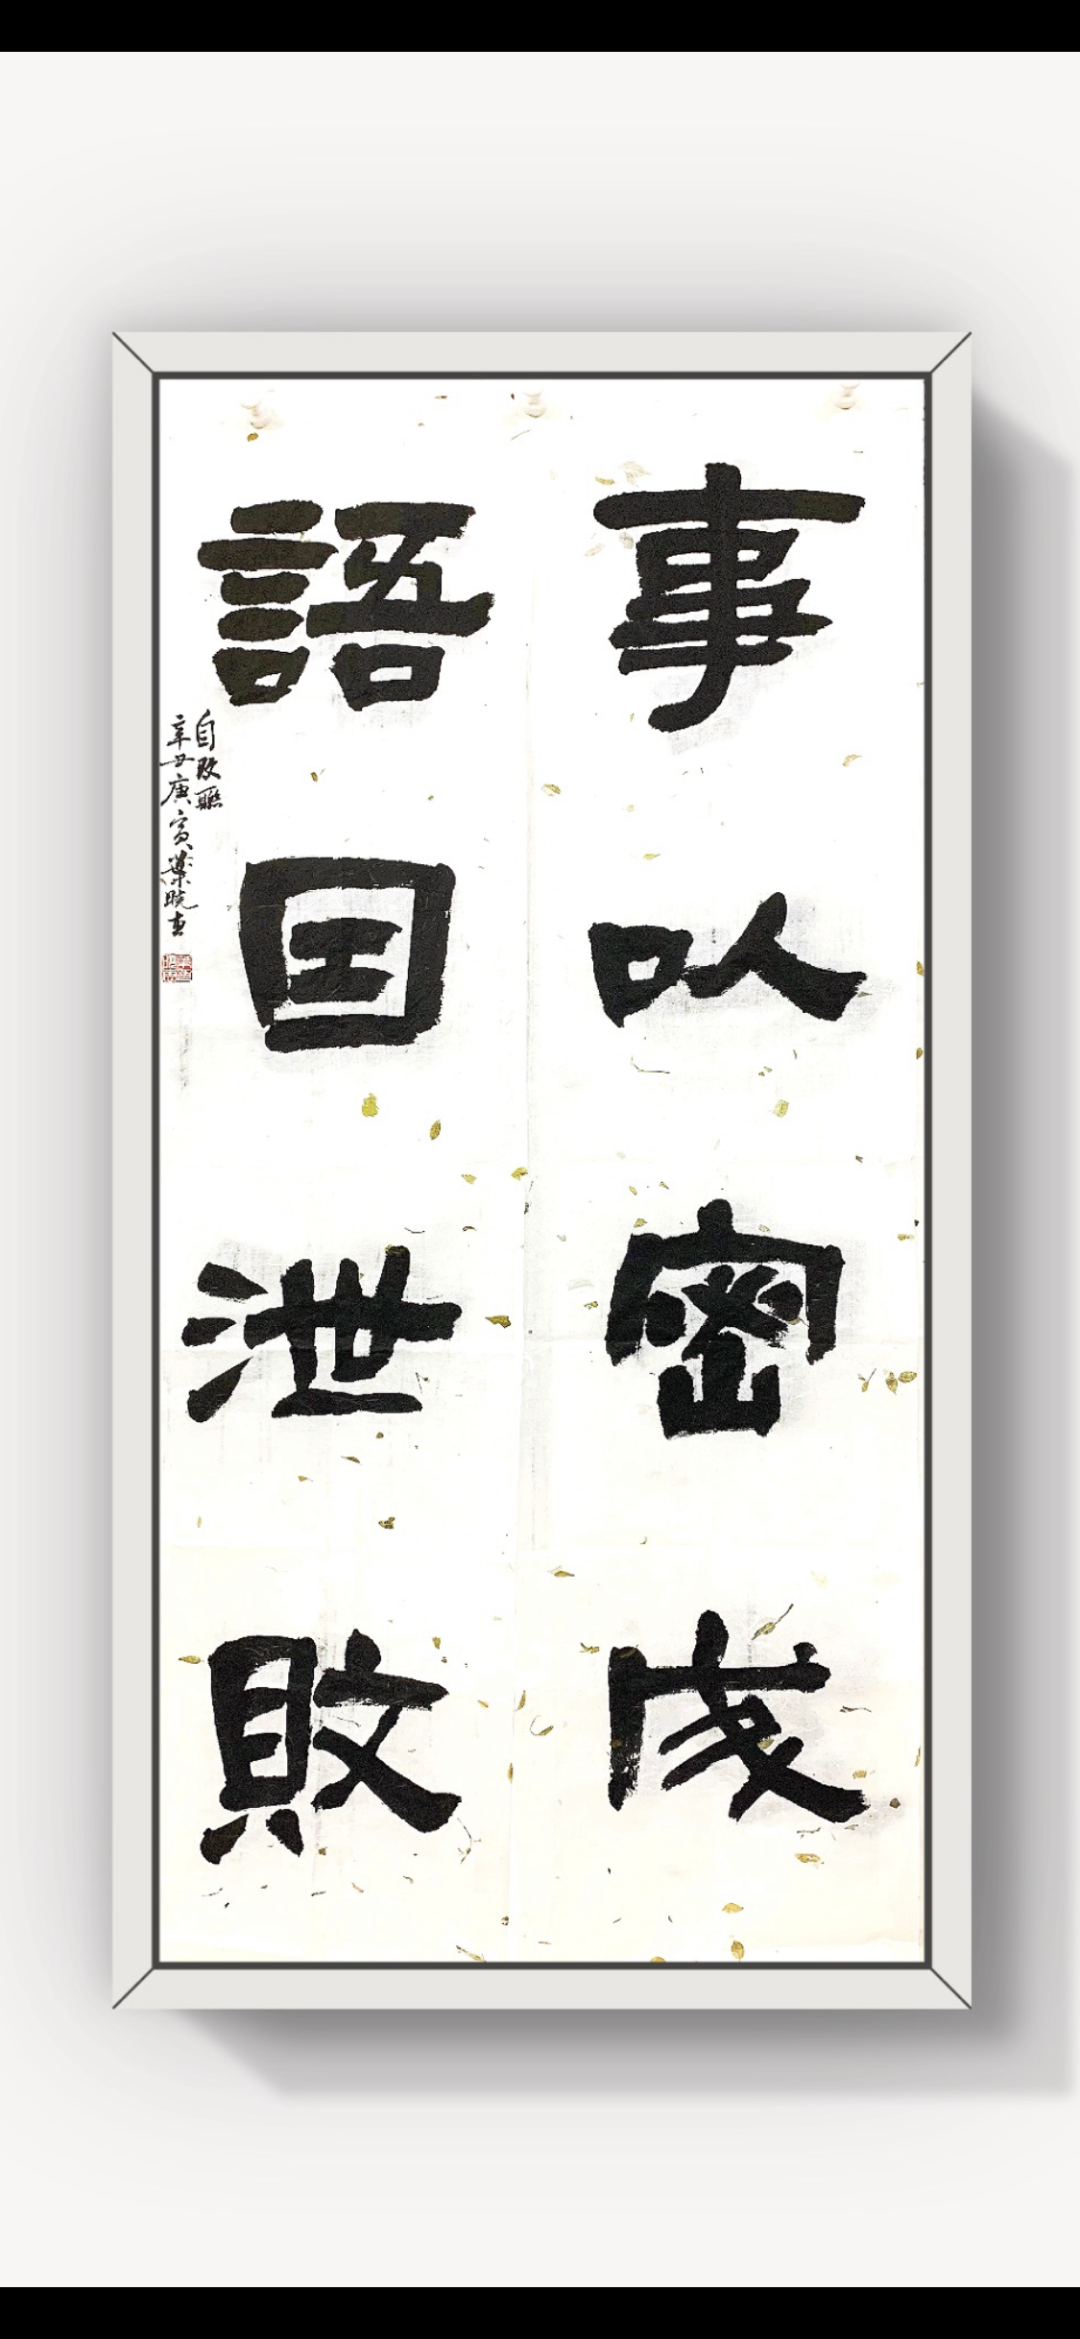 事以密成
語因泄敗
自改聯
辛丑庚寅葉晓